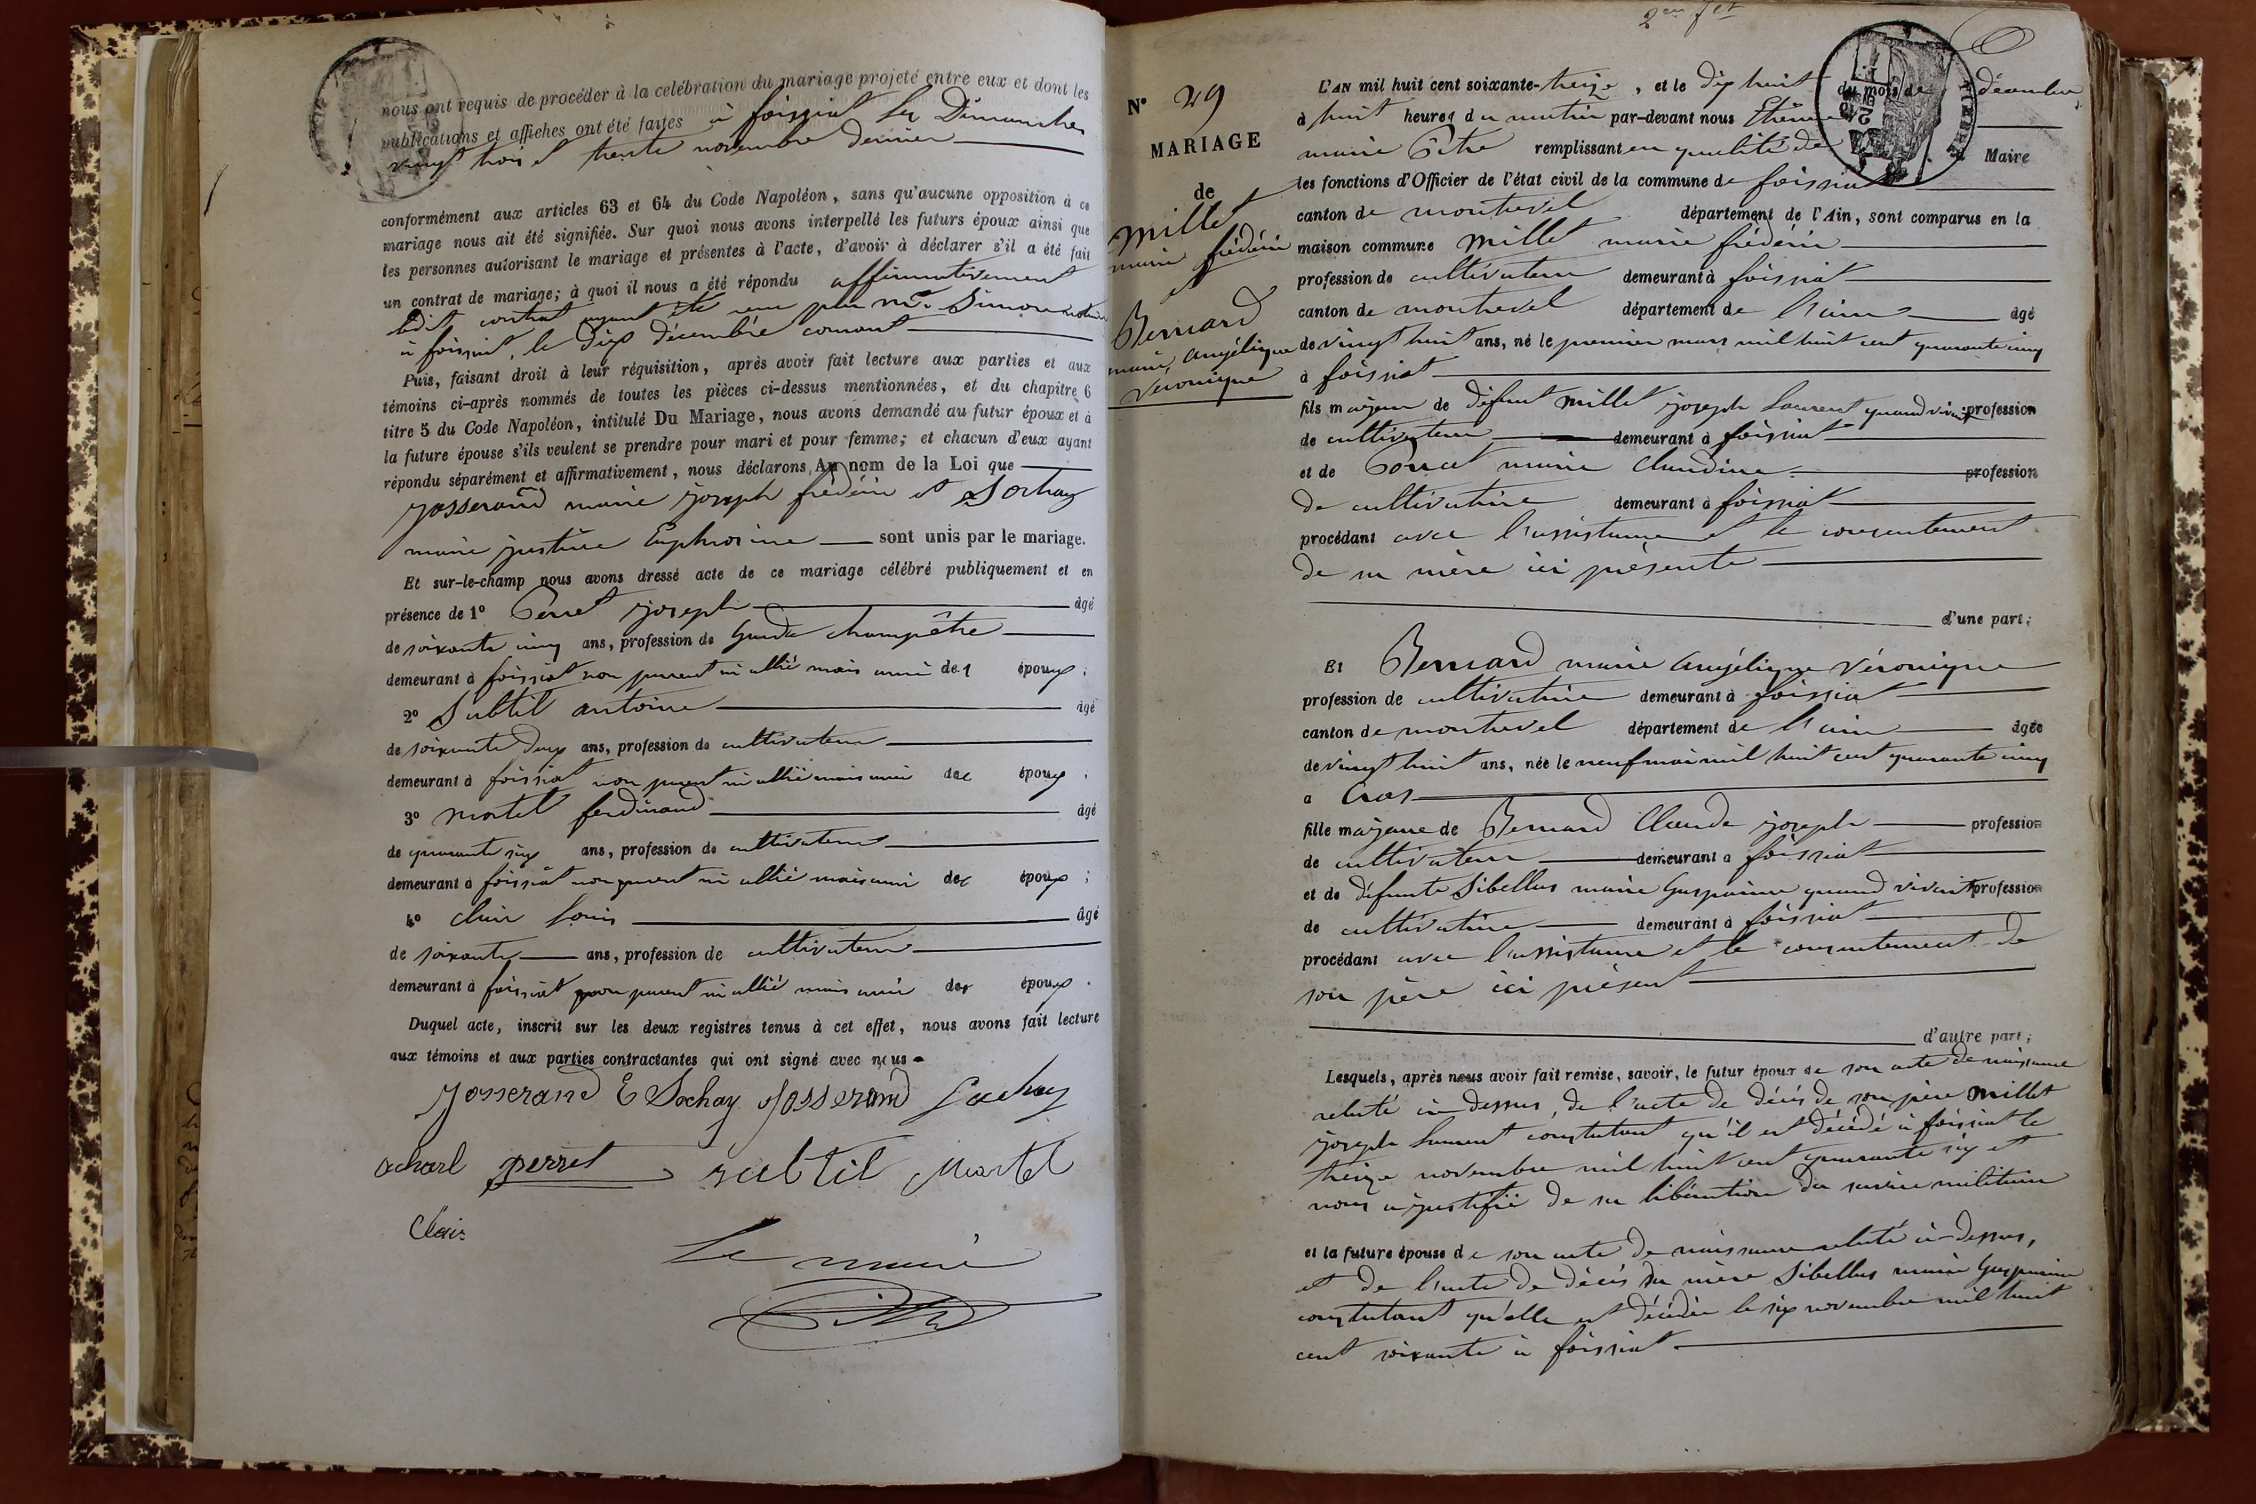 nous ont requis de procéder à la celébration du mariage projeté entre eux et dont les
publications et affiches ont été faites à foissiat les Dimanches
vingt trois et trente novembre dernier
conformément aux articles 63 et 64 du Code Napoléon, sans qu'aucune opposition à ce
mariage nous ait été signifiée. Sur quoi nous avons interpellé les futurs époux ainsi que
les personnes autorisant le mariage et présentes à l'acte, d'avoir à déclarer s'il a été fait
un contrat de mariage; à quoi il nous a été répondu affirmativement
ledit contrat ayant été reçu par me. Simon notaire
à foissiat, le dix décembre courant
Puis, faisant droit à leur réquisition, après avoir fait lecture aux parties et aux
témoins ci-après nommés de toutes les pièces ci-dessus mentionnées, et du chapitre 6
titre 5 du Code Napoléon, intitulé Du Mariage, nous avons demandé au futur époux et à
la future épouse s'ils veulent se prendre pour mari et pour femme; et chacun d'eux ayant
répondu séparément et affirmativement, nous déclarons, Au nom de la Loi que
Josserand marie joseph frédéric et Sochay
marie justine Euphrosine sont unis par le mariage.
Et sur-le-champ nous avons dressé acte de ce mariage célébré publiquement et en
présence de 1º Perret joseph âgé
de soixante cinq ans, profession de Garde champêtre
demeurant à foissiat non parent ni allié mais ami des époux ;
2º Subtil antoine âgé
de soixante deux ans, profession de cultivateur
demeurant à foissiat non parent ni allié mais ami des époux .
3º Martel ferdinand âgé
de quarante six ans, profession de cultivateur
demeurant à foissiat non parent ni allié mais ami des époux ;
4º clair Louis âgé
de soixante ans, profession de cultivateur
demeurant à foissiat non parent ni allié mais ami des époux .
Duquel acte, inscrit sur les deux registres tenus à cet effet, nous avons fait lecture
aux témoins et aux parties contractantes qui ont signé avec nous
Josserand E Sochay Josserand Sochay
acharl perret subtil Martel
Clair
Le maire
Nº 29
MARIAGE
de
Millet
marie frédéric
et
Bernard
marie angélique
Véronique
L'AN mil huit cent soixante-treize, et le dix huit du mois de décembre
à huit heures du matin par-devant nous Etienne
marie Pitre remplissant en qualité de Maire
les fonctions d'Officier de l'état civil de la commune de foissiat
canton de montrevel département de l'Ain, sont comparus en la
maison commune Millet marie frédéric
profession de cultivateur demeurant à foissiat
canton de montrevel département de l'ain âgé
de vingt huit ans, né le premier mars mil huit cent quarante cinq
à foissiat
fils majeur de défunt Millet joseph Laurent quand vivait profession
de cultivateur demeurant à foissiat
et de Poncet marie Claudine profession
de cultivatrice demeurant à foissiat
procédant avec l'assistance et le consentement
de sa mère ici présente
d'une part;
Et Bernard marie angélique Véronique
profession de cultivatrice demeurant à foissiat
canton de montrevel département de l'ain âgée
de vingt huit ans, née le neuf mai mil huit cent quarante cinq
à Cras
fille majeure de Bernard Claude joseph profession
de cultivateur demeurant à foissiat
et de défunte Sibellas marie Gasparine quand vivait profession
de cultivatrice demeurant à foissiat
procédant avec l'assistance et le consentement de
son père ici présent
d'autre part;
Lesquels, après nous avoir fait remise, savoir, le futur époux de son acte de naissance
relaté ci-dessus, de l'acte de décès de son père Millet
joseph Laurent constatant qu'il est décédé à foissiat le
treize novembre mil huit cent quarante six et
nous a justifié de sa libération du service militaire
et la future épouse de son acte de naissance relaté ci-dessus,
et de l'acte de décès du mère Sibellas marie Gasparine
constatant qu'elle est décédée le six novembre mil huit
cent soixante à foissiat